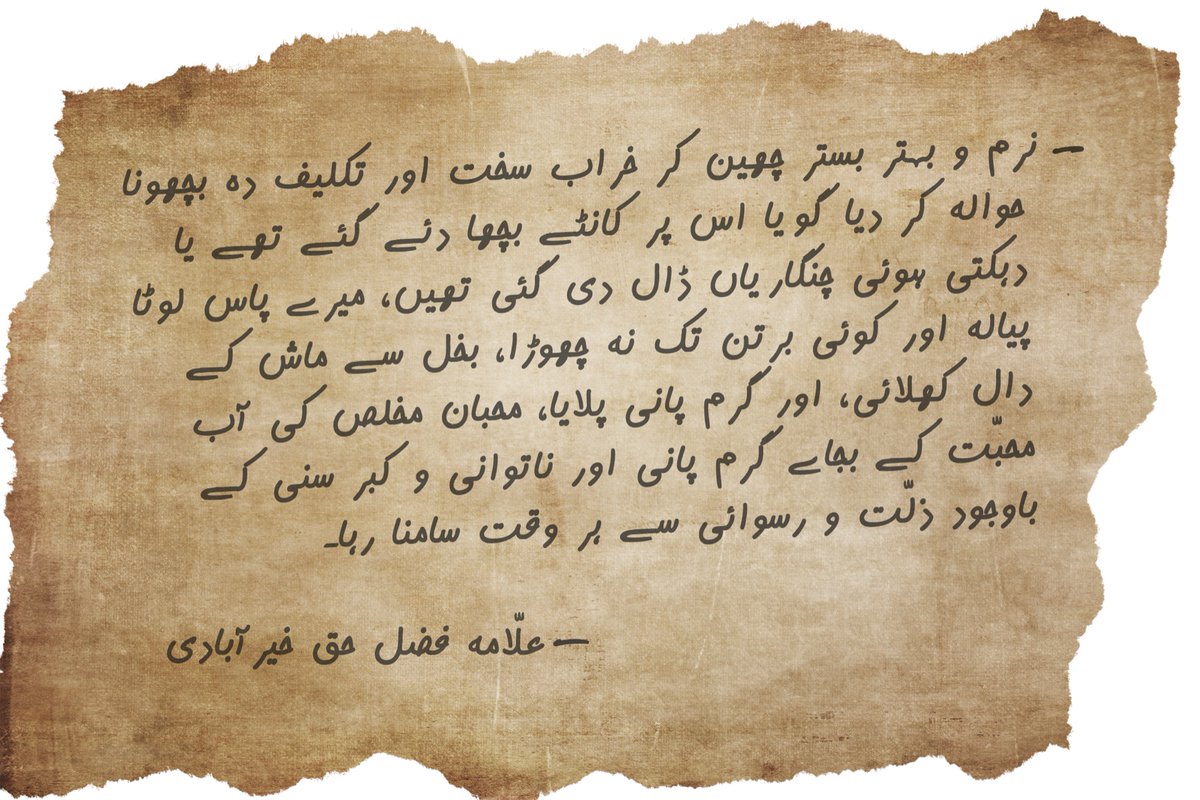 — نرم و بہتر بستر چھین کر خراب سخت اور تکلیف دہ بچھونا
حوالہ کر دیا گویا اس پر کانٹے بچھا دئے گئے تھے یا
دہکتی ہوئی چنگاریاں ڈال دی گئی تھیں، میرے پاس لوٹا
پیالہ اور کوئی برتن تک نہ چھوڑا، بخل سے ماش کے
دال کھلائی، اور گرم پانی پلایا، محبان مخلص کی آب
محبّت کے بجاے گرم پانی اور ناتوانی و کبر سنی کے
باوجود ذلّت و رسوائی سے ہر وقت سامنا رہا۔
— علّامہ فضل حق خیر آبادی